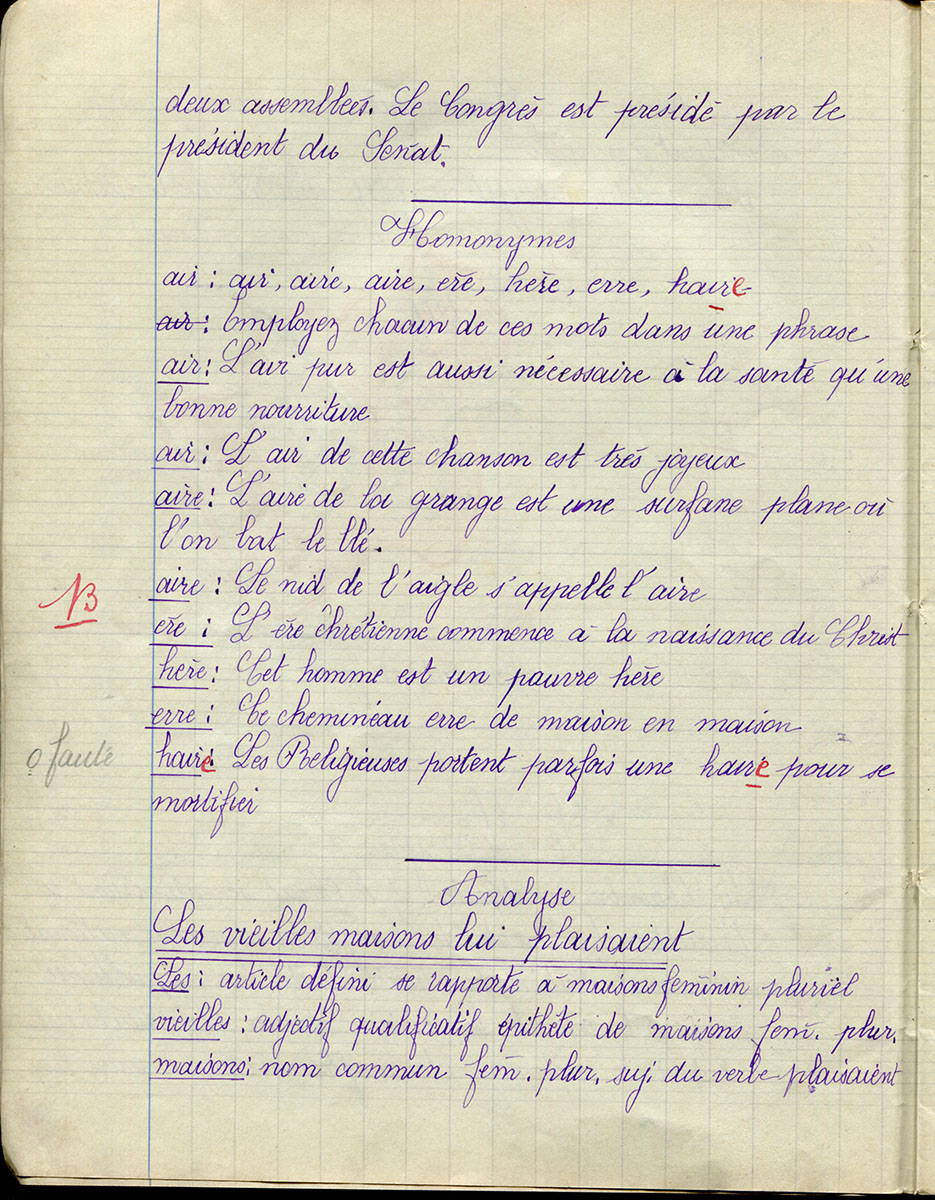 deux assemblées. Le Congrès est présidé par le
président du Sénat.
Homonymes
air : air, aire, aire, ère, hère, erre, haire
air : Employez chacun de ces mots dans une phrase
air : L'air pur est aussi nécessaire à la santé qu'une
bonne nourriture
air : L'air de cette chanson est très joyeux
aire : L'aire de la grange est une surfane plane où
l'on bat le blé.
aire : Le nid de l'aigle s'appelle l'aire
B
ère : L'ère chrétienne commence à la naissance du Christ
hère : Cet homme est un pauvre hère
erre : Ce chemineau erre de maison en maison
0 faute
haire : Les Religieuses portent parfois une haire pour se
mortifier
Analyse
Les vieilles maisons lui plaisaient
Les : article défini se rapporte à maisons féminin pluriel
vieilles : adjectif qualificatif épithète de maisons fém. plur.
maisons : nom commun fém. plur. suj. du verbe plaisaient